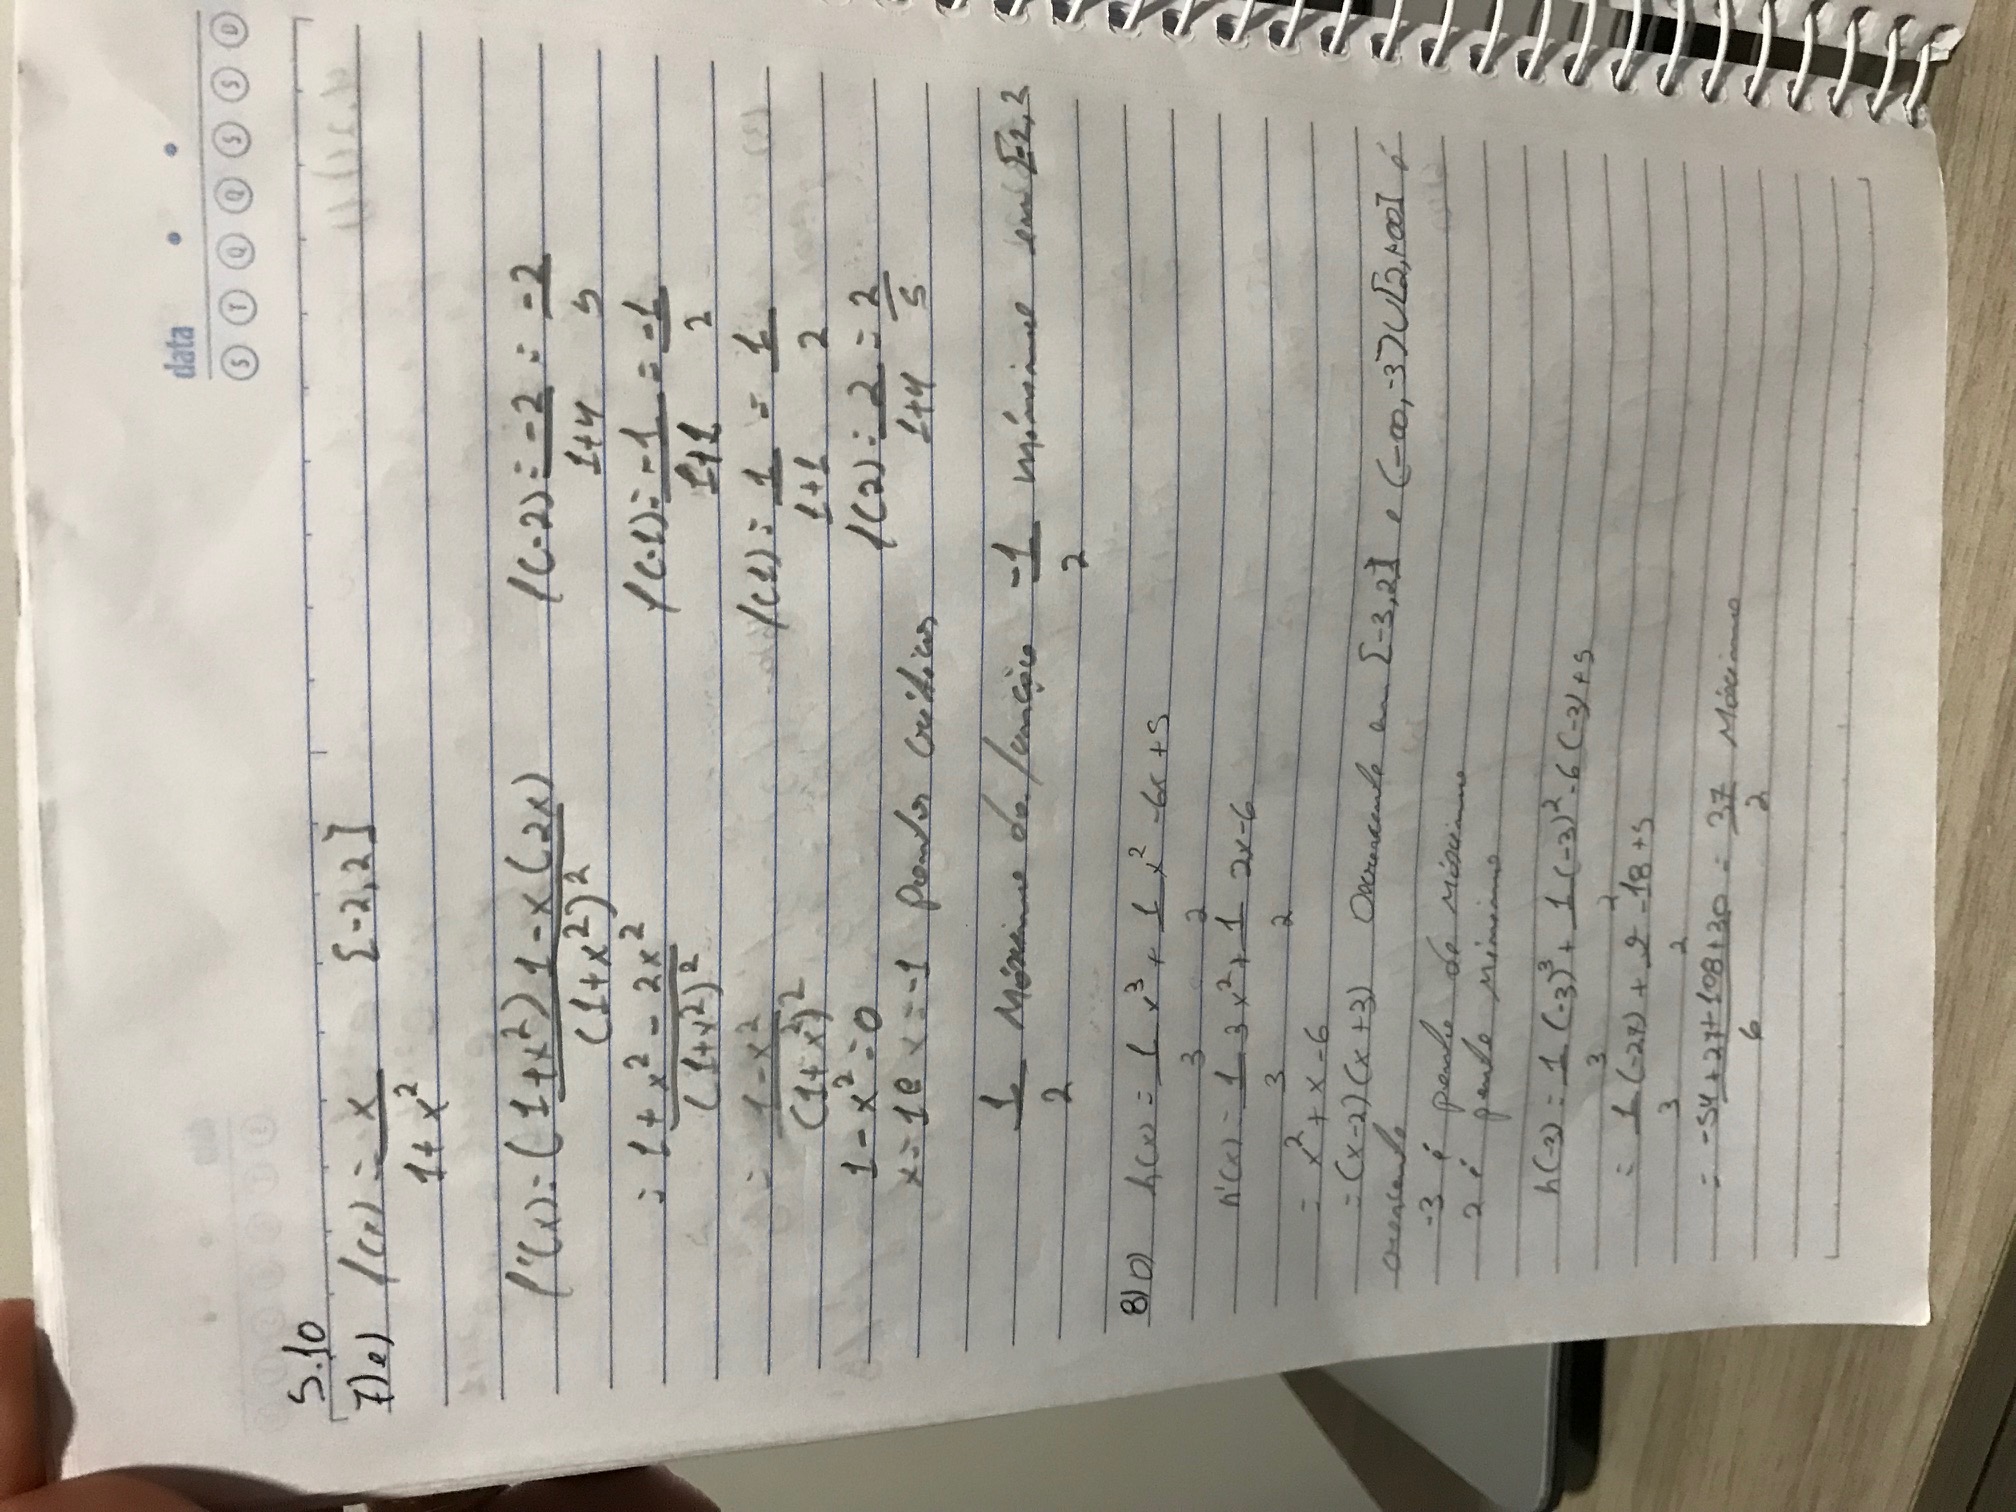 data
S T Q Q S S D
5.10
7)e) f(x) = x/(1+x²) [-2,2]
f'(x) = ((1+x²)1-x(2x))/(1+x²)² f(-2) = -2/(1+4) = -2/5
= (1+x²-2x²)/(1+x²)² f(-1) = -1/(1+1) = -1/2
= (1-x²)/(1+x²)² f(1) = 1/(1+1) = 1/2
1-x² = 0 f(2) = 2/(1+4) = 2/5
x=1 e x=-1 Pontos Críticos
1/2 Máximo da função -1/2 mínimo em [-2,2
8) h(x) = 1/3 x³ + 1/2 x² -6x+5
h'(x) = 1/3 3x² + 1/2 2x-6
= x²+x-6
= (x-2)(x+3) Decrescente em [-3,2] e (-∞,-3]∪[2,+∞] é
crescente
-3 é ponto de Máximo
2 é ponto Mínimo
h(-3) = 1/3 (-3)³ + 1/2 (-3)² -6(-3)+5
= 1/3 (-27) + 9/2 -18+5
= (-54+27+108+30)/6 = 37/2 Máximo